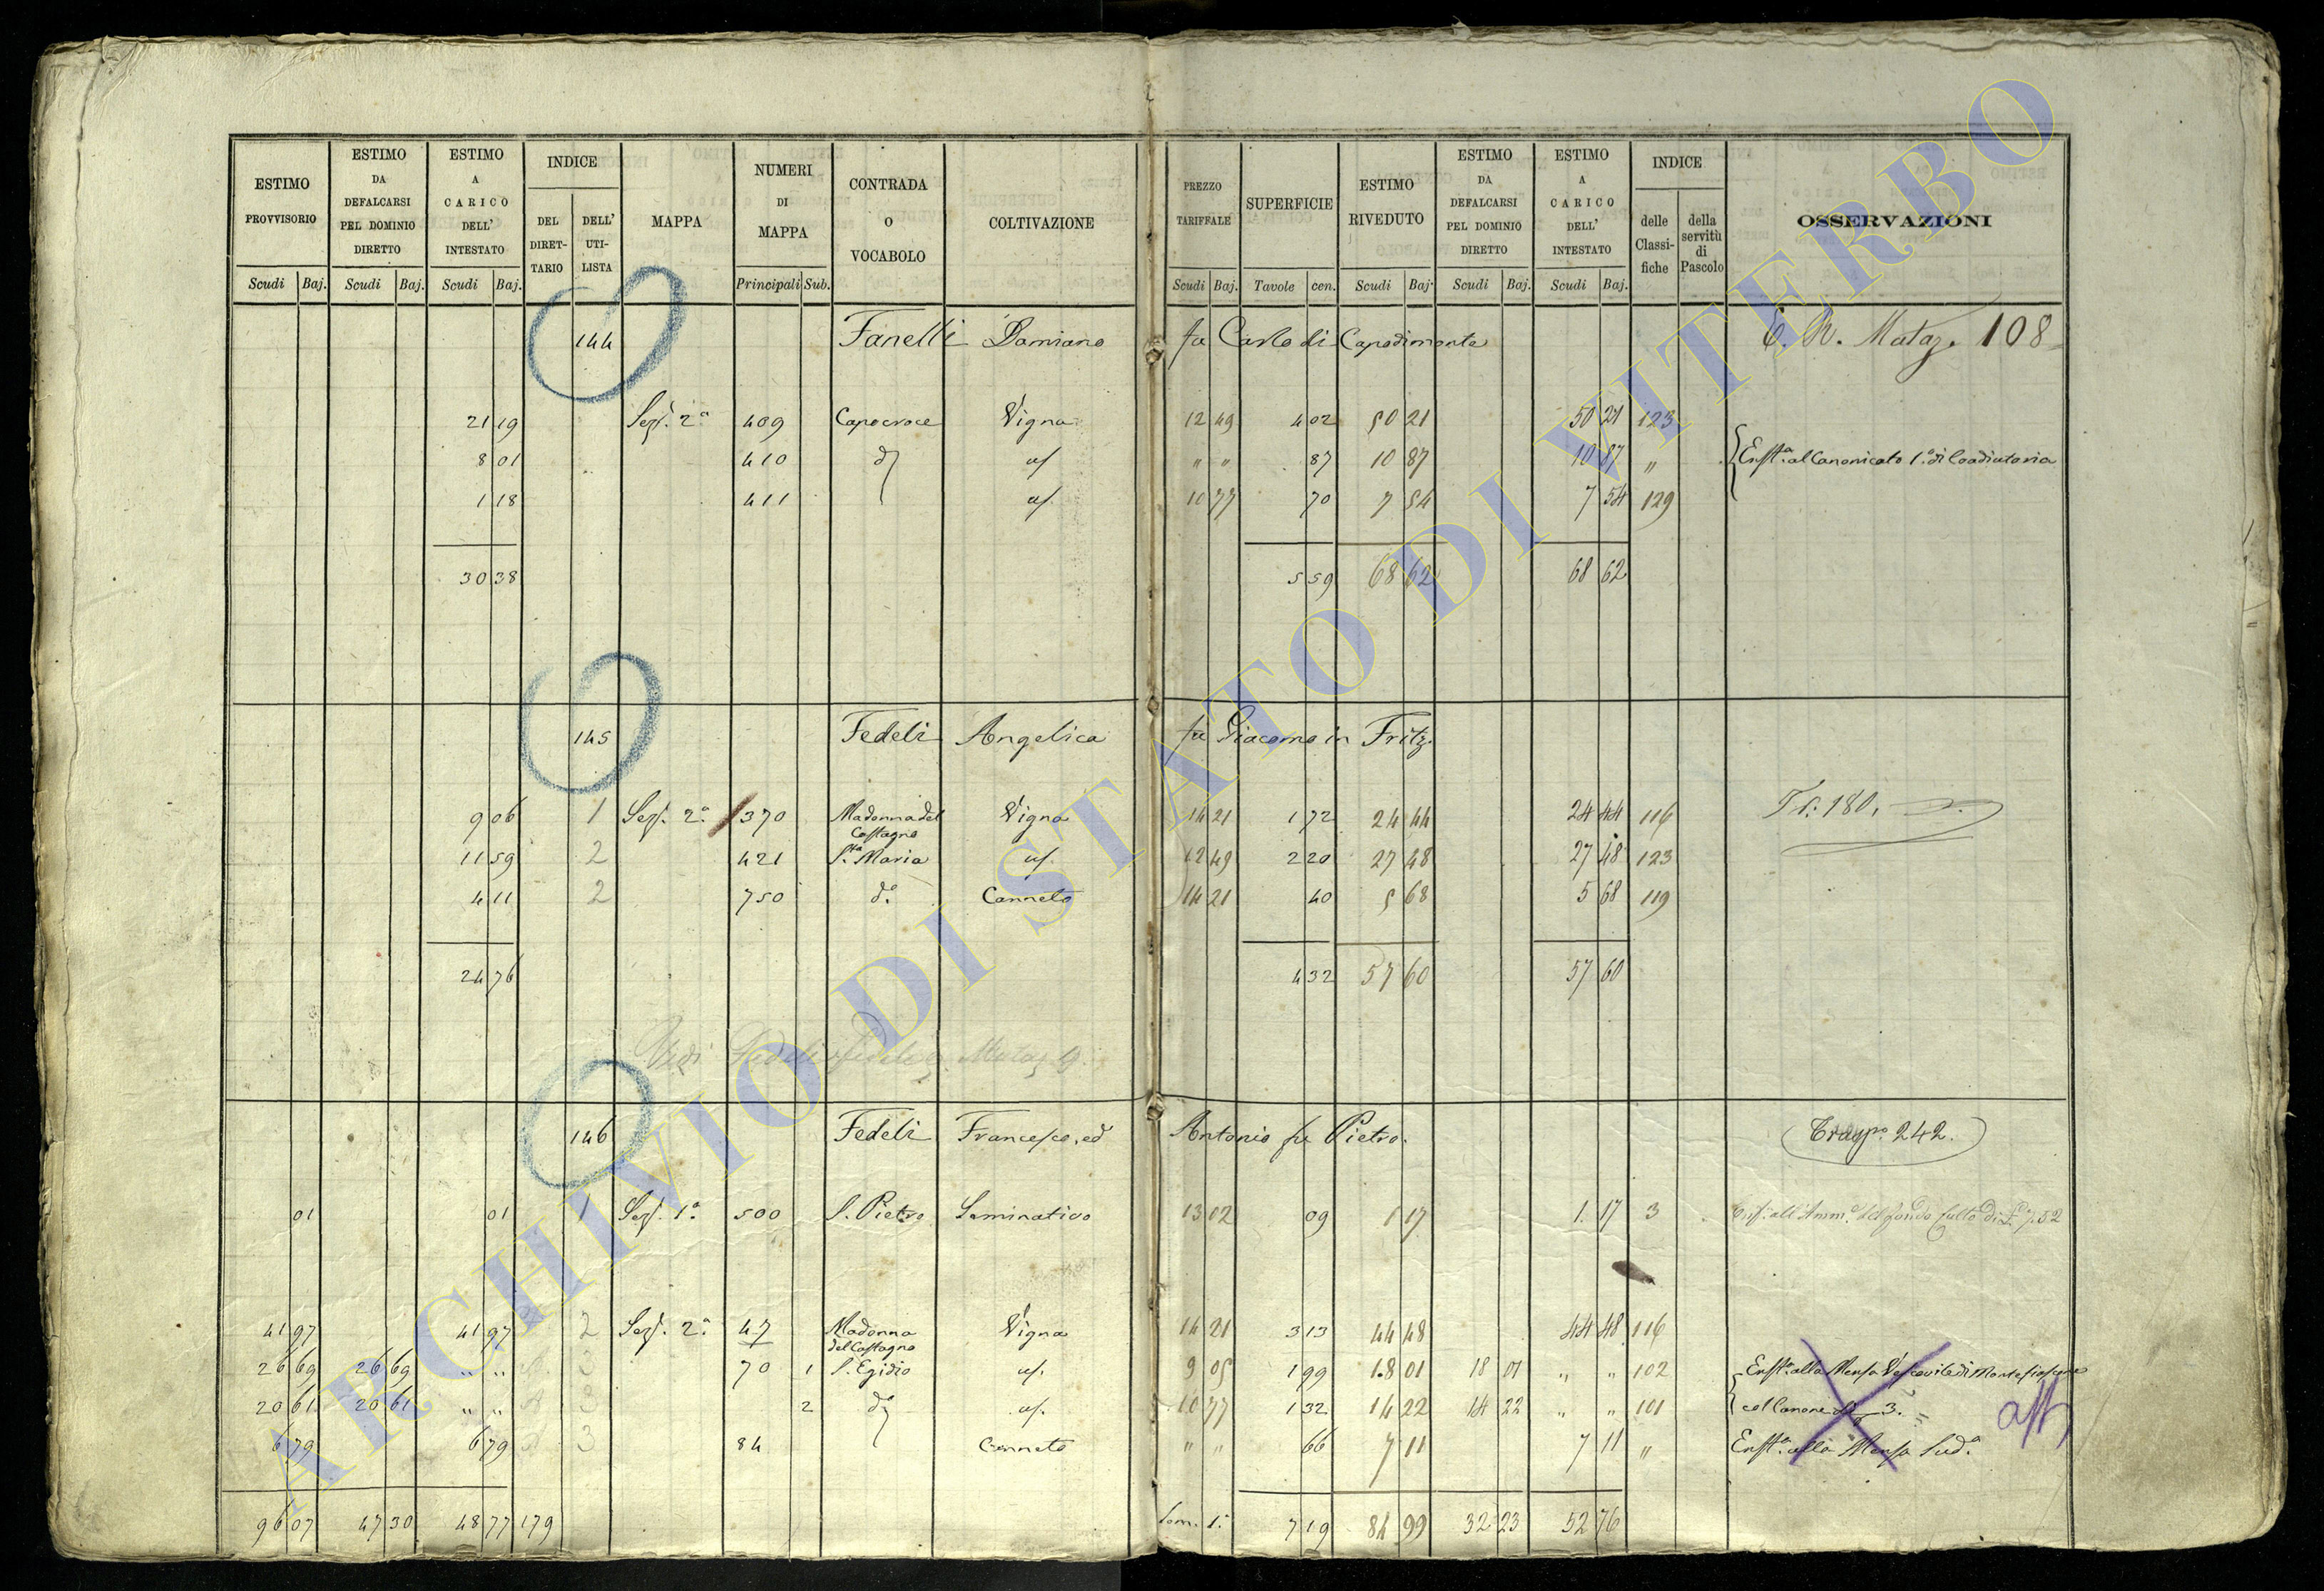 ESTIMO PROVVISORIO Scudi Baj. ESTIMO DA DEFALCARSI PEL DOMINIO DIRETTO Scudi Baj. ESTIMO A CARICO DELL' INTESTATO Scudi Baj. INDICE DEL DIRETTARIO DELL' UTILISTA MAPPA NUMERI DI MAPPA Principali Sub. CONTRADA O VOCABOLO COLTIVAZIONE PREZZO TARIFFALE Scudi Baj. SUPERFICIE Tavole cen. ESTIMO RIVEDUTO Scudi Baj. ESTIMO DA DEFALCARSI PEL DOMINIO DIRETTO Scudi Baj. ESTIMO A CARICO DELL' INTESTATO Scudi Baj. INDICE delle Classifiche della servitù di Pascolo OSSERVAZIONI
144 Fanelli Damiano fu Carlo di Capodimonte 108
21 19 Sez. 2ª 409 Capocroce Vigna 12 49 4 02 50 21 50 21 123
8 01 410 d° id. " " 87 10 87 10 87 " Enft.ª al Canonicato 1.° di Coadiutoria
1 18 411 id. 10 77 70 7 54 7 54 129
30 38 5 59 68 62 68 62
145 Fedeli Angelica fu Giacomo in Fritz
9 06 1 Sez. 2ª 370 Madonna del Castagno Vigna 14 21 1 72 24 44 24 44 116 Tr. 180.
11 59 2 421 S.ta Maria id. 12 49 2 20 27 48 27 48 123
4 11 2 750 d.° Canneto 14 21 40 5 68 5 68 119
24 76 4 32 57 60 57 60
Vedi Fedeli
146 Fedeli Francesco, ed Antonio fu Pietro. Trasp.° 242.
01 01 1 Sez. 1ª 500 S. Pietro Seminativo 13 02 09 1 17 1 17 3
41 97 41 97 2 Sez. 2ª 47 Madonna del Castagno Vigna 14 21 3 13 44 48 44 48 116
26 69 26 69 " " 3 70 1 S. Egidio id. 9 05 1 99 18 01 18 01 " " 102 Enft.ª alla Mensa Vescovile di Montefiascone
20 61 20 61 " " 3 2 d° id. 10 77 1 32 14 22 14 22 " " 101 col Canone di 3.
6 79 6 79 3 84 Canneto " " 66 7 11 7 11 " Enft.ª alla Mensa Sud.ª
96 07 47 30 48 77 179 Som. 1.ª 7 19 84 99 32 23 52 76
ARCHIVIO DI STATO DI VITERBO